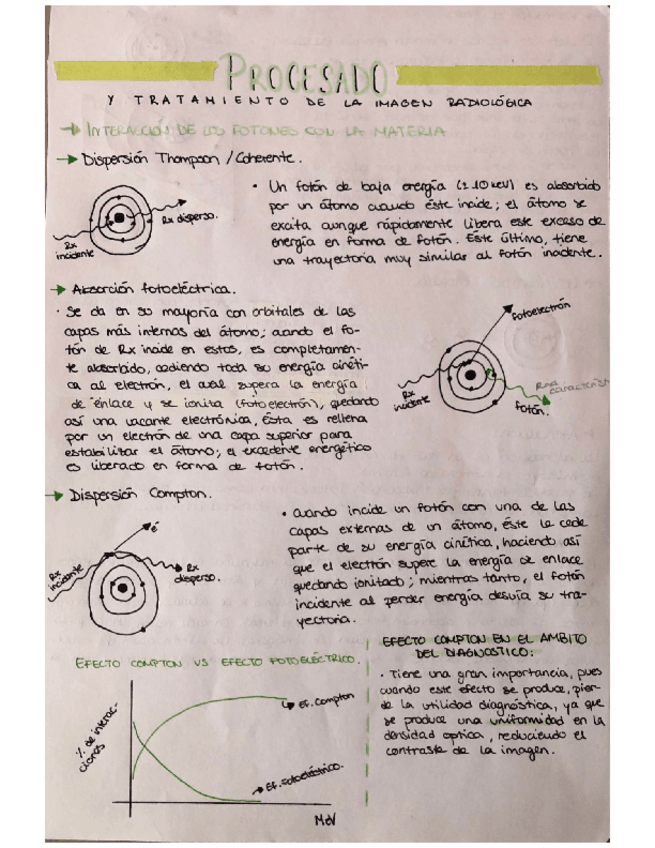 PROCESADO
Y TRATAMIENTO DE LA IMAGEN RADIOLÓGICA
INTERACCIÓN DE LOS FOTONES CON LA MATERIA
Dispersión Thompson / Coherente.
• Un fotón de baja energía (≥ 10 keV) es absorbido
por un átomo cuando éste incide; el átomo se
excita aunque rápidamente libera este exceso de
energía en forma de fotón. Este último, tiene
una trayectoria muy similar al fotón incidente.
Rx disperso.
Rx
incidente
Absorción fotoeléctrica.
• Se da en su mayoría con orbitales de las
capas más internas del átomo; cuando el fo-
tón de Rx incide en estos, es completamen-
te absorbido, cediendo toda su energía cinéti-
ca al electrón, el cual supera la energía
de enlace y se ioniza (fotoelectrón), quedando
así una vacante electrónica, ésta es rellena
por un electrón de una capa superior para
estabilizar el átomo; el excedente energético
es liberado en forma de fotón.
fotoelectrón
Rx
incidente
fotón.
Dispersión Compton.
• Cuando incide un fotón con una de las
capas externas de un átomo, éste le cede
parte de su energía cinética, haciendo así
que el electrón supere la energía de enlace
quedando ionizado; mientras tanto, el fotón
incidente al perder energía desvía su tra-
yectoria.
é
Rx
incidente
Rx
disperso.
EFECTO COMPTON VS EFECTO FOTOELÉCTRICO.
% de interac-
ciones
Ef. compton
Ef. Fotoeléctrico.
MeV
EFECTO COMPTON EN EL AMBITO
DEL DIAGNOSTICO:
• Tiene una gran importancia, pues
cuando este efecto se produce, pier-
de la utilidad diagnóstica, ya que
se produce una uniformidad en la
densidad optica, reduciendo el
contraste de la imagen.